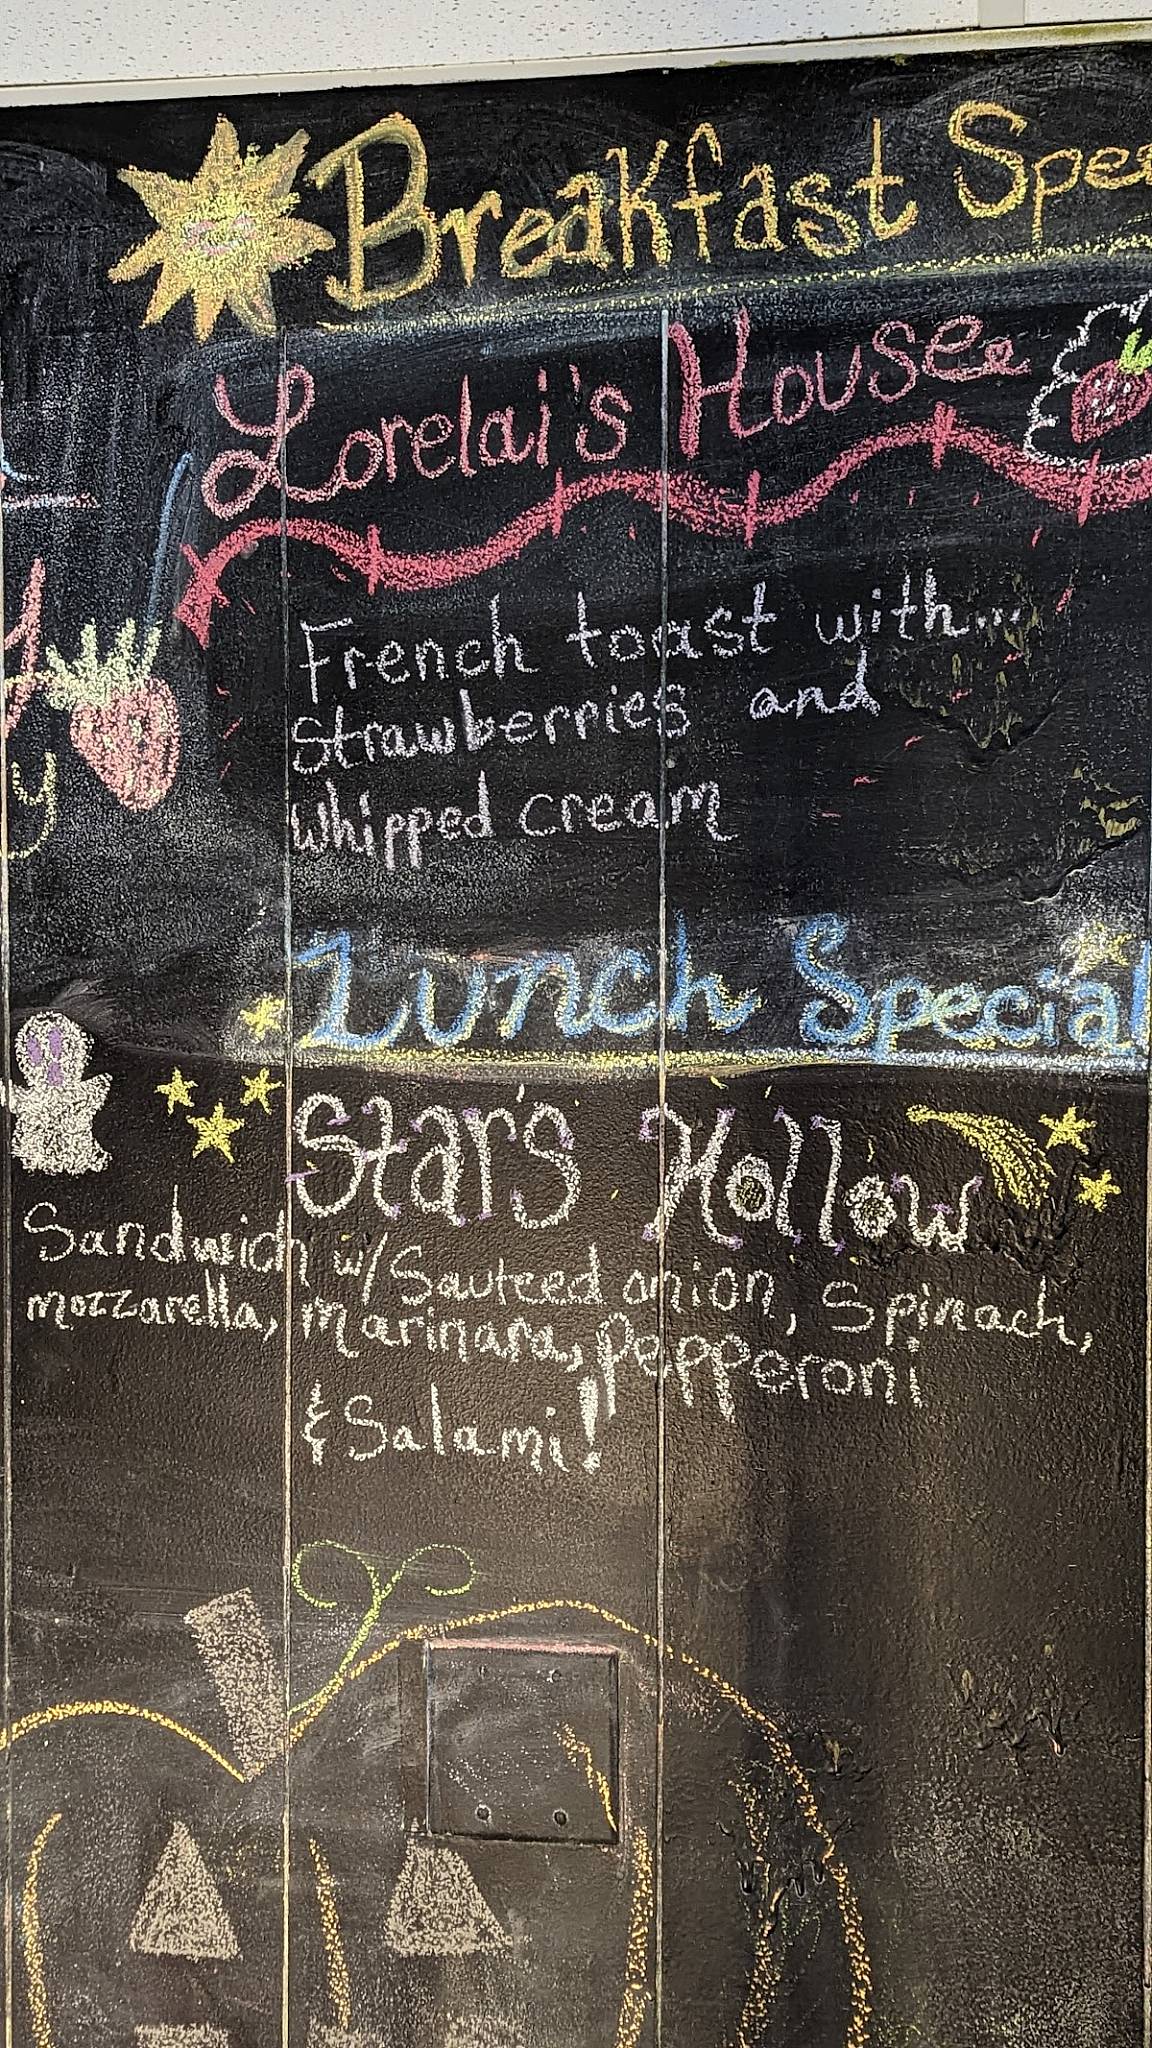 Breakfast Spe
Lorelai's House
French toast with...
strawberries and
whipped cream
Lunch Special
Star's Hollow
Sandwich w/Sauteed onion, Spinach,
mozzarella, marinara, pepperoni
& Salami!
y